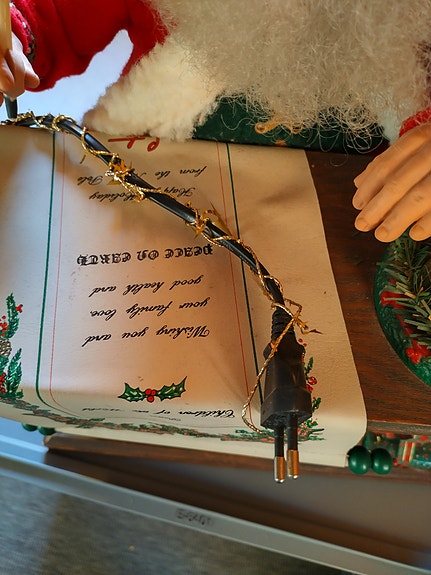 Children of
Wishing you and
your family love
good health and
PEACE ON EARTH
Happy Holiday
from the
Pole